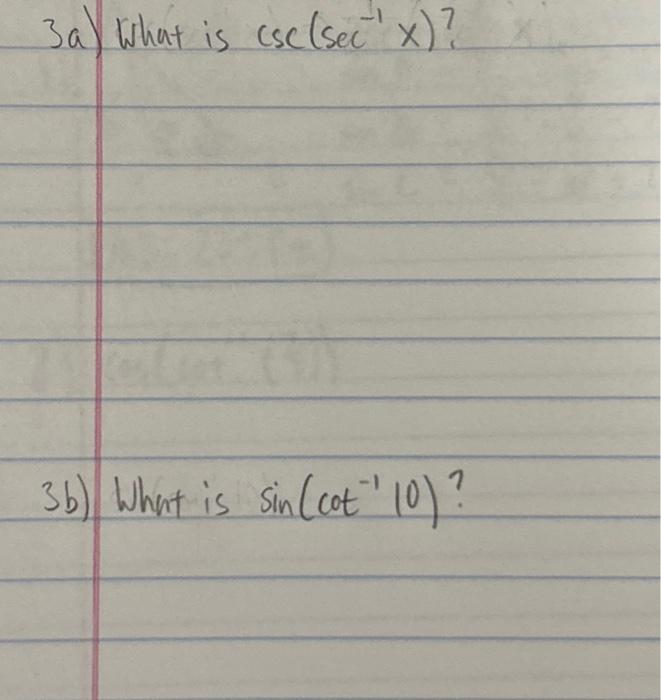 3a) What is csc(sec⁻¹ x)?
3b) What is sin(cot⁻¹ 10)?